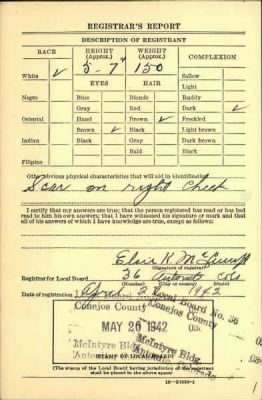 REGISTRAR'S REPORT
DESCRIPTION OF REGISTRANT
RACE HEIGHT (Approx.) WEIGHT (Approx.) COMPLEXION
White ✓ 5-7" 150 Sallow
EYES HAIR Light
Negro Blue Blonde Ruddy
Gray Red Dark ✓
Oriental Hazel Brown ✓ Freckled
Brown ✓ Black Light brown
Indian Black Gray Dark brown
Bald Black
Filipino
Other obvious physical characteristics that will aid in identification
Scar on right Cheek
I certify that my answers are true; that the person registered has read or has had
read to him his own answers; that I have witnessed his signature or mark and that
all of his answers of which I have knowledge are true, except as follows:
(Signature of registrar)
Registrar for Local Board 36 Antonito Colo
(Number) (City or county) (State)
Date of registration 1942
Local Board No. 36
Conejos County
MAY 26 1942
McIntyre Bldg.
(STAMP OF LOCAL BOARD)
(The stamp of the Local Board having jurisdiction of the registrant
shall be placed in the above space)